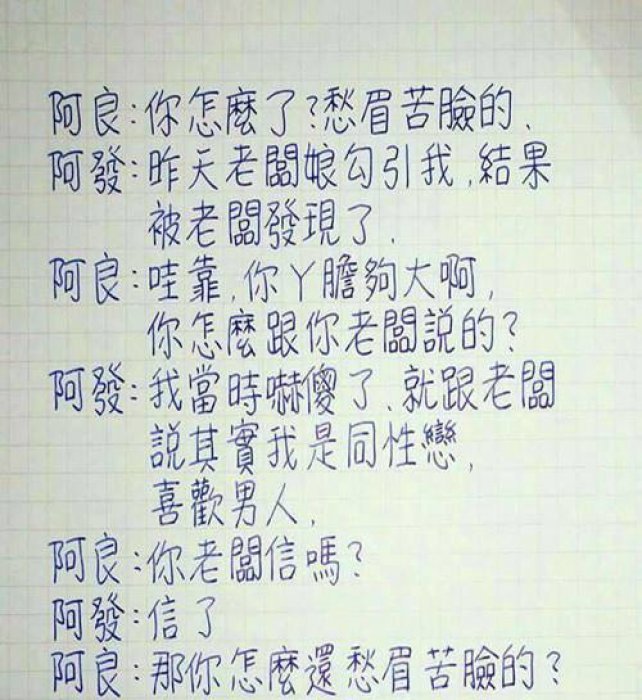 阿良:你怎麼了?愁眉苦臉的.
阿發:昨天老闆娘勾引我.結果
被老闆發現了.
阿良:哇靠.你丫膽夠大啊,
你怎麼跟你老闆說的?
阿發:我當時嚇傻了.就跟老闆
說其實我是同性戀,
喜歡男人.
阿良:你老闆信嗎?
阿發:信了
阿良:那你怎麼還愁眉苦臉的?